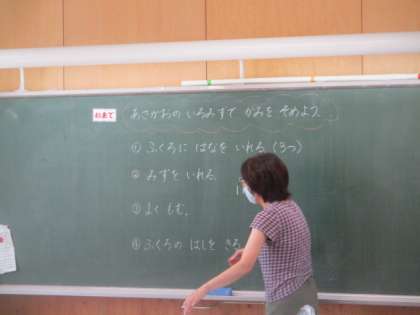 めあて あさがおの いろみずで かみを そめよう。
① ふくろに はなを いれる。(3つ)
② みずを いれる。
③ よく もむ。
④ ふくろの はしを きる